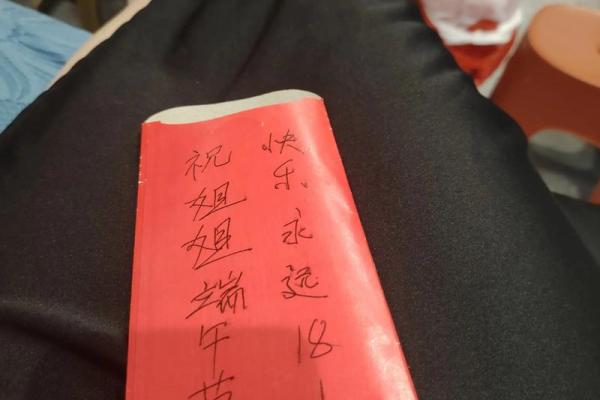 祝姐姐端午节
快乐、永远18